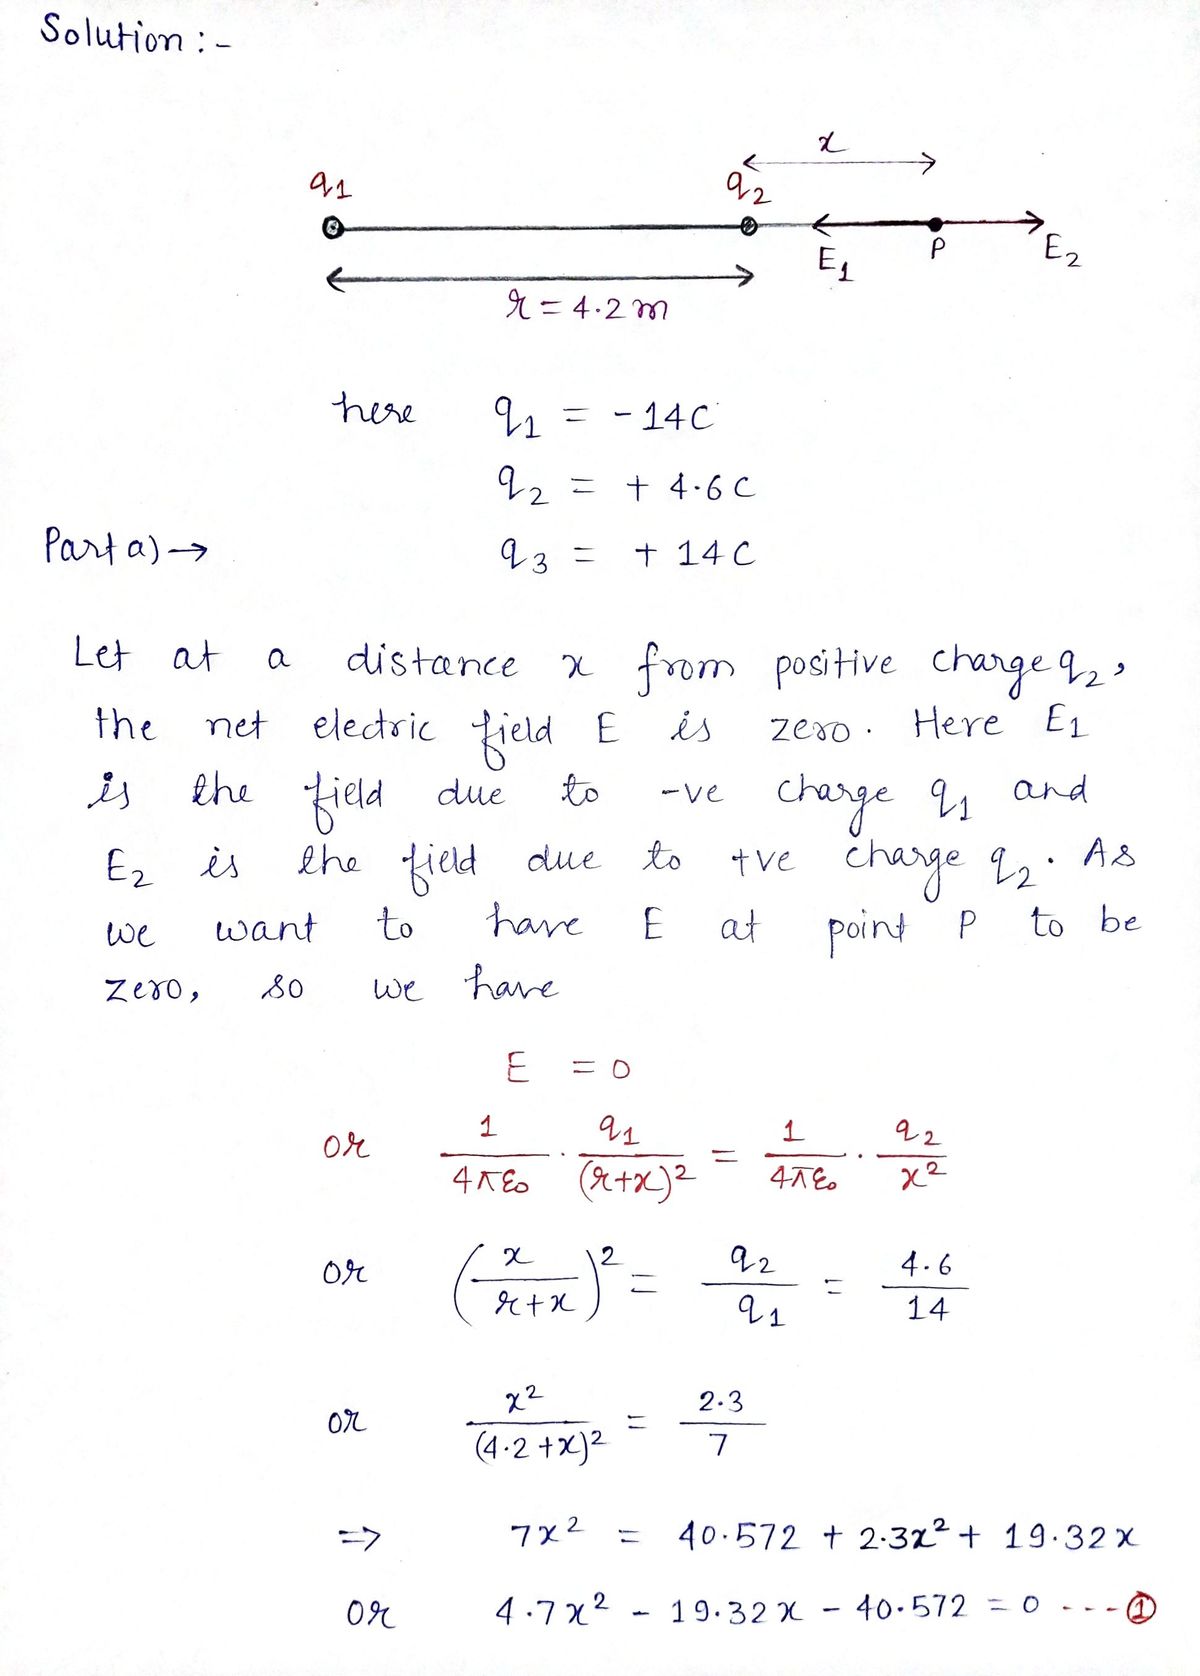 Solution :-
x
q₁ q₂
E₁ P E₂
r = 4.2 m
here q₁ = - 14C
q₂ = + 4.6 C
Part a) → q₃ = + 14 C
Let at a distance x from positive charge q₂,
the net electric field E is zero. Here E₁
is the field due to -ve charge q₁ and
E₂ is the field due to +ve charge q₂. As
we want to have E at point P to be
zero, so we have
E = 0
or 1/4πε₀ · q₁/(r+x)² = 1/4πε₀ · q₂/x²
or (x/r+x)² = q₂/q₁ = 4.6/14
or x²/(4.2+x)² = 2.3/7
=> 7x² = 40.572 + 2.3x² + 19.32x
or 4.7x² - 19.32x - 40.572 = 0 ---①